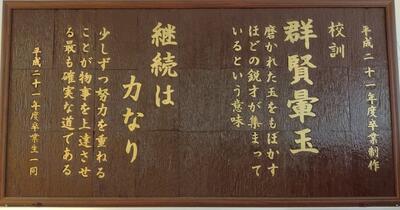 平成二十一年度卒業制作
校訓
群賢暈玉
磨かれた玉をもほかす
ほどの鋭才が集まって
いるという意味
継続は
力なり
少しずつ努力を重ねる
ことが物事を上達させ
る最も確実な道である
平成二十一年度卒業生一同